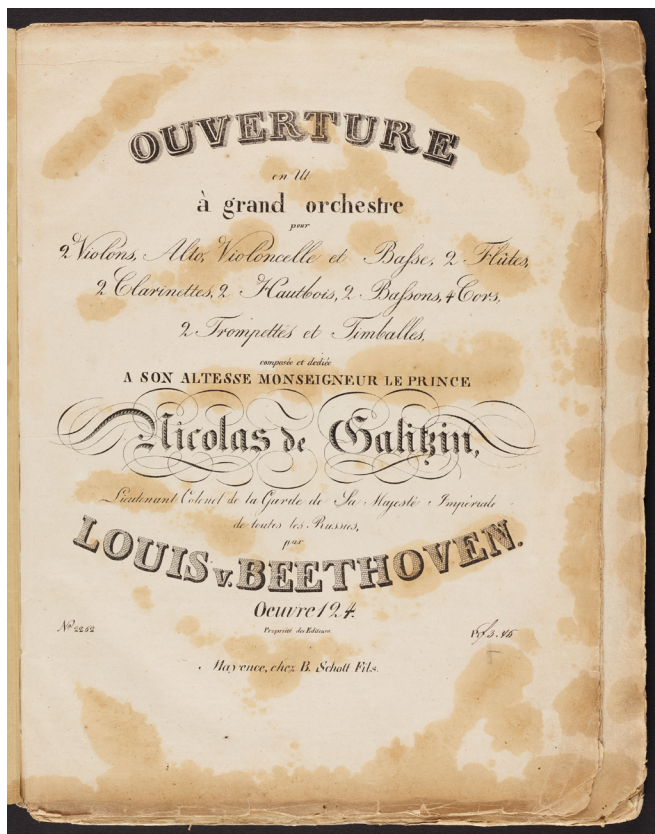 OUVERTURE
en Ut
à grand orchestre
pour
2 Violons, Alto, Violoncelle et Basse, 2 Flûtes,
2 Clarinettes, 2 Hautbois, 2 Bassons, 4 Cors,
2 Trompettes et Timballes,
composée et dediée
A SON ALTESSE MONSEIGNEUR LE PRINCE
Nicolas de Galitzin,
Lieutenant Colonel de la Garde de Sa Majesté Impériale
de toutes les Russies,
par
LOUIS v. BEETHOVEN.
Oeuvre 124.
Propriété des Editeurs
Nº 2262
Mayence, chez B. Schott Fils.